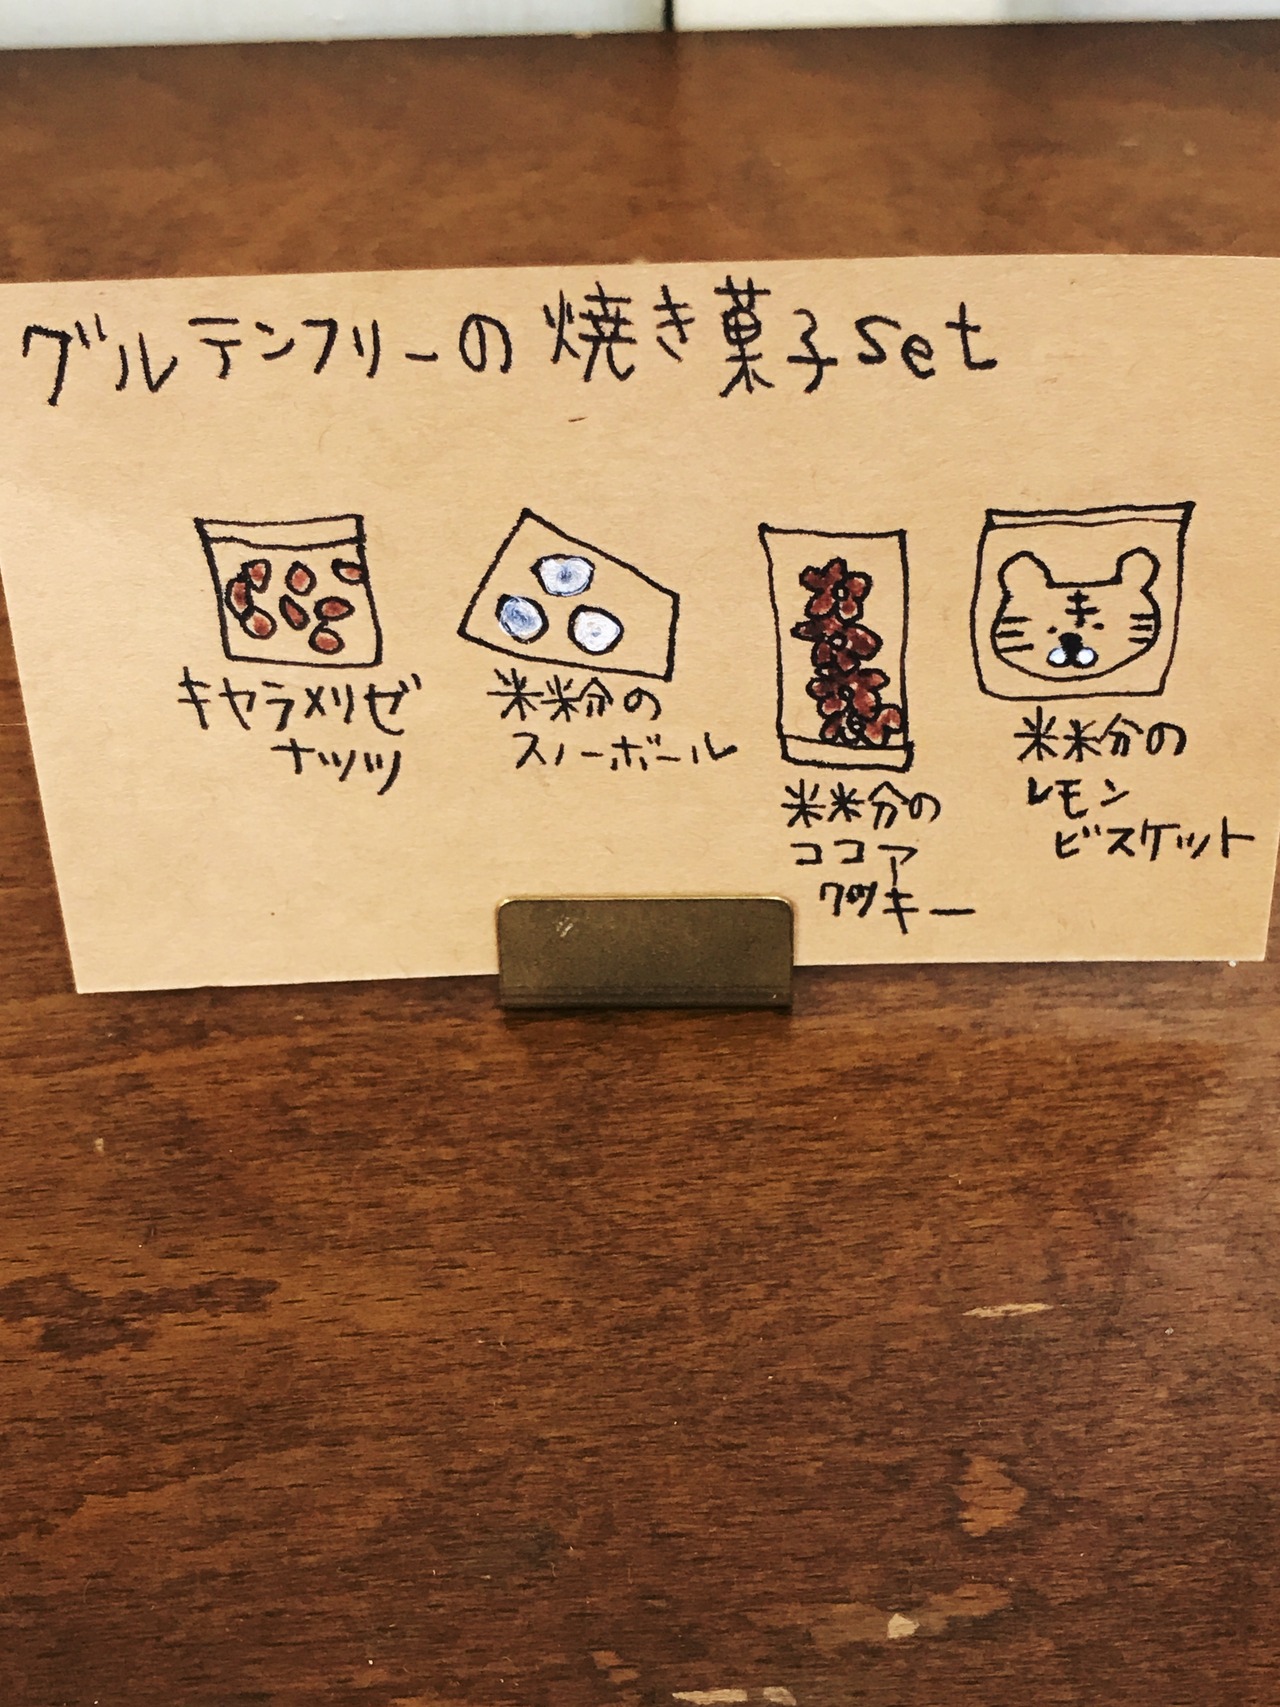 グルテンフリーの焼き菓子set
キャラメリゼ
ナッツ
米粉の
スノーボール
米粉の
ココア
クッキー
米粉の
レモン
ビスケット